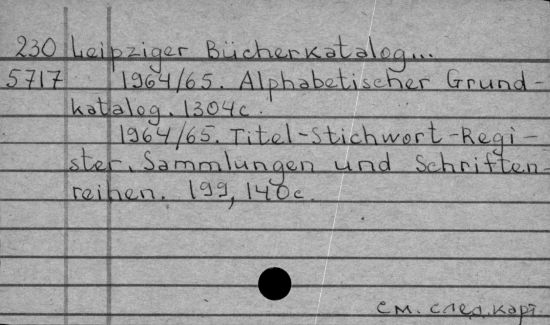 230 Leipziger Bücherkatalog...
5717 1964/65. Alphabetischer Grund-
katalog. 1304c.
1964/65. Titel-Stichwort-Regi-
ster. Sammlungen und Schriften-
reihen. 199, 140c.
см. след. карт.